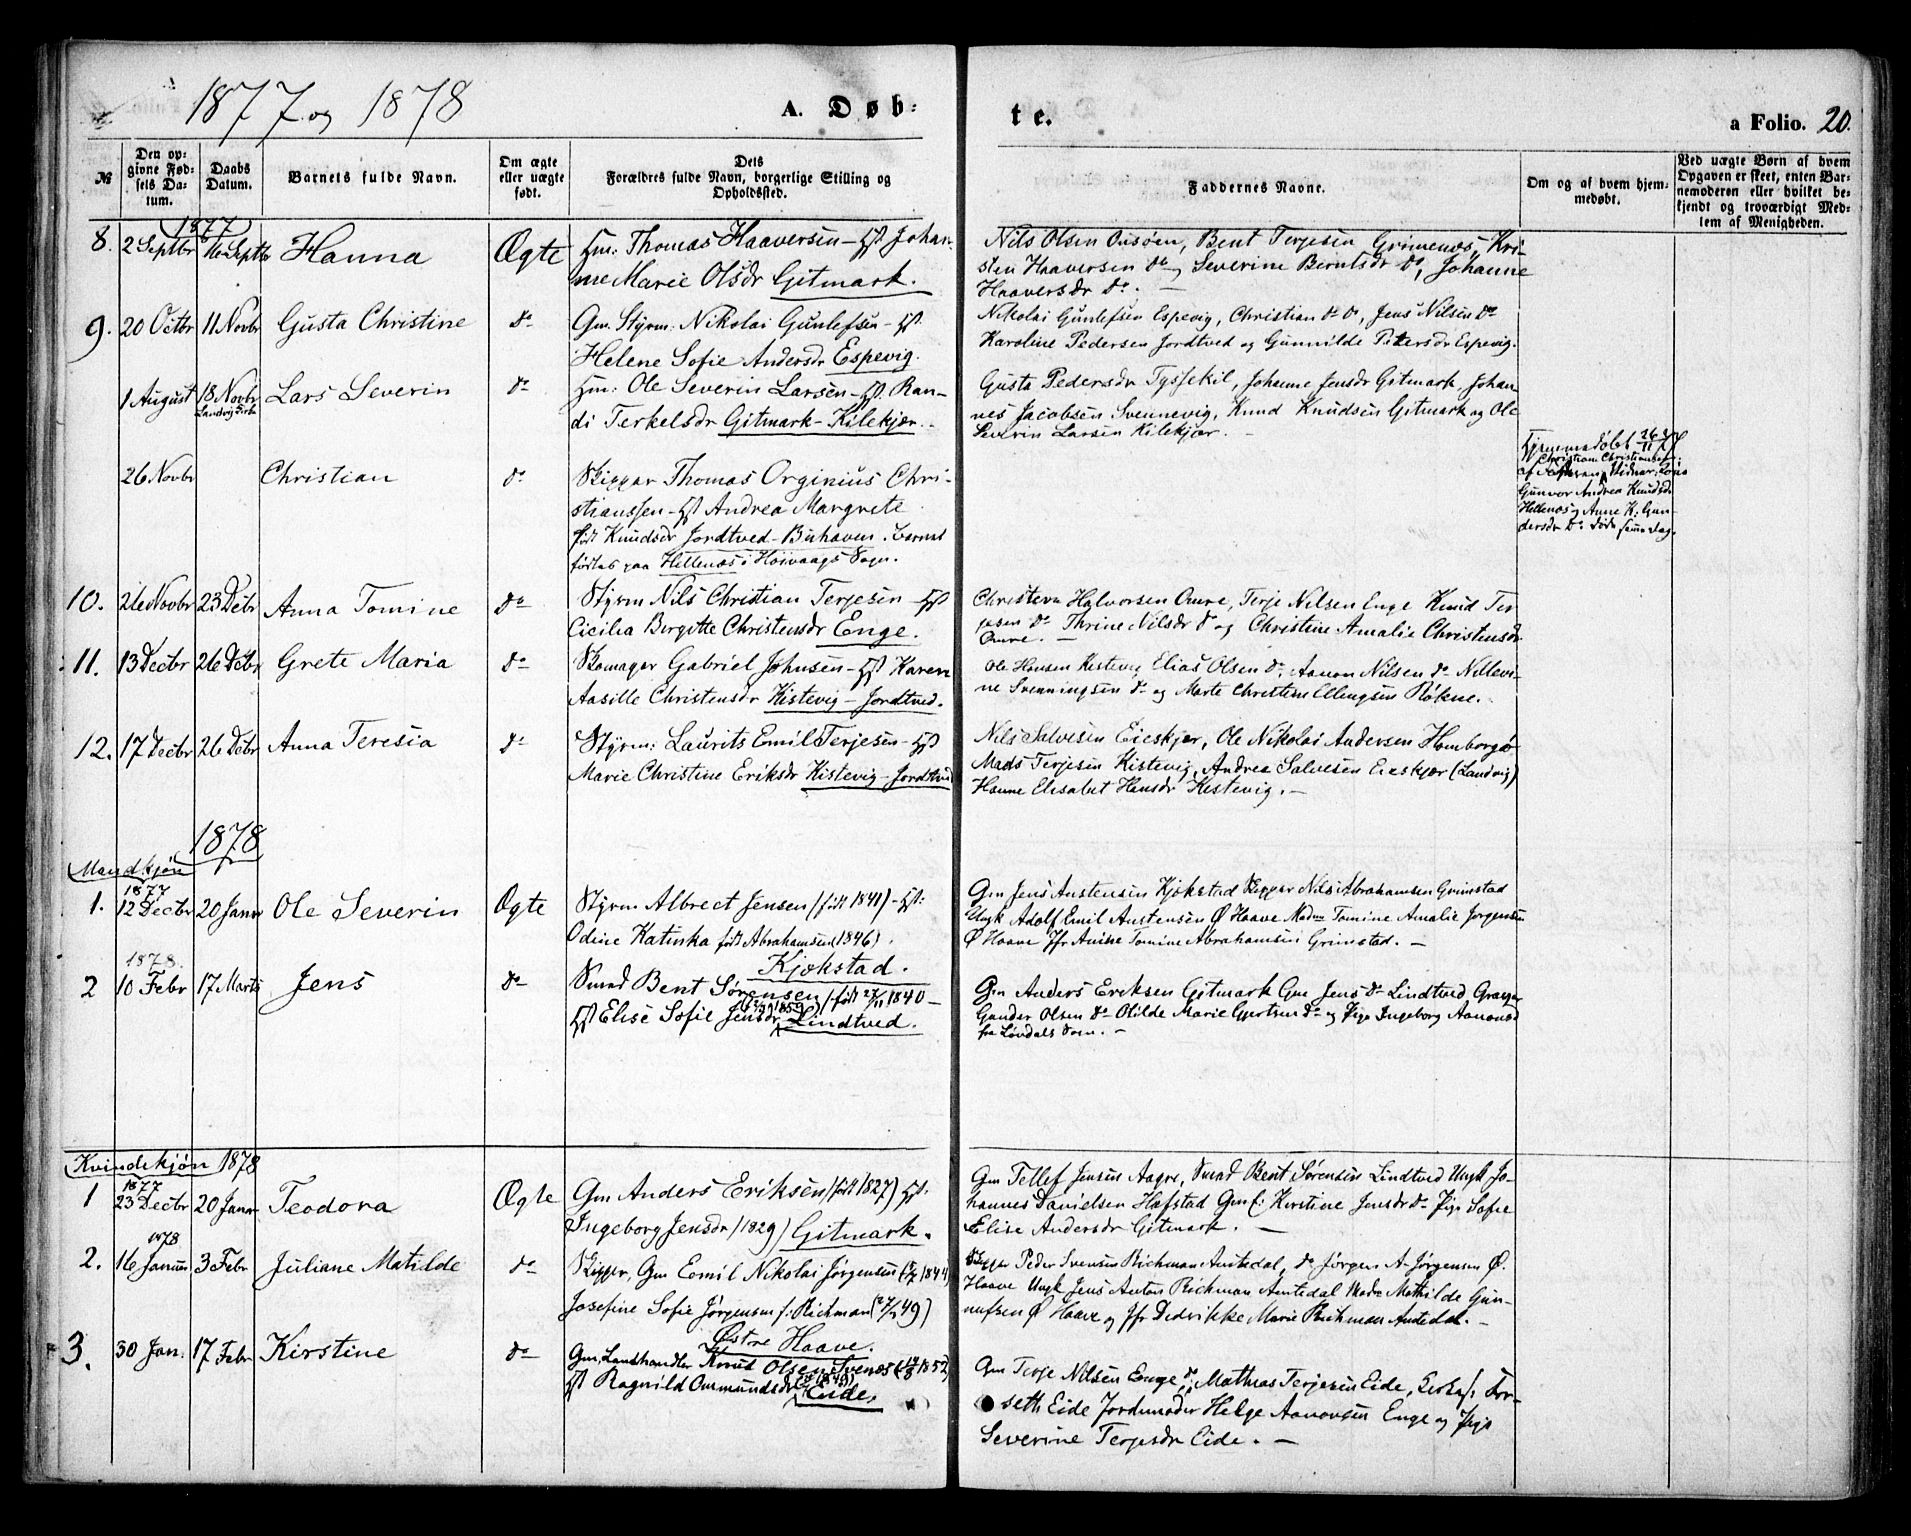 1877 og 1878
A. Døb-
te.
a Folio. 20.
№
Den op-
givne Fød-
sels Da-
tum.
Daabs
Datum.
Barnets fulde Navn.
Om ægte
eller uægte
født.
Dets
Forældres fulde Navn, borgerlige Stilling og
Opholdssted.
Faddernes Navne.
Om og af hvem hjem-
medøbt.
Ved uægte Børn af hvem
Opgaven er skeet, enten Bar-
nemoderen eller hvilket be-
kjendt og troværdigt Med-
lem af Menigheden.
1877
8. 2 Septbr 16 Septbr Hanna Ægte Hm: Thomas Haaversen – Hst Johan-
ne Marie Olsdr Gitmark.
Nils Olsen Onsøen, Bent Terjesen Grimenæs, Kri-
sten Haaversen do og Severine Berntsdr do, Johanne
Haaversdr do. –
9. 20 Octbr 11 Novbr Gusta Christine do Gm. Styrm: Nikolai Gunlefsen – Hst.
Helene Sofie Andersdr Espevig.
Nikolai Gunlefsen Espevig, Christian do do, Jens Nilsen do
Karoline Pedersen Jordtved og Gunnilde Petersdr Espevig.
1 August 18 Novbr Lars Severin do Hm: Ole Severin Larsen – Hst. Ran-
Landvig Kirke
di Terkelsdr Gitmark – Kilekjær.
Gusta Pedersdr Tyssekil, Johanne Jensdr Gitmark, Johan-
nes Jacobsen Svennevig, Knud Knudsen Gitmark og Ole
Severin Larsen Kilekjær. –
26 Novbr Christian do Skipper Thomas Orginius Chri-
stianssen – Hst Andrea Margrete
født Knudsdr Jordtved – Buhaven. Barnet
fødtes paa Hellenæs i Høivaags Sogn.
Hjemmedøbt 26/11 77
Christian Christiansen
Gunvor Andrea Knudsdr
Hellenæs og Anne K. Gun-
dersdr do. Døde samme Dag.
10. 26 Novbr 23 Debr Anna Tomine do Styrm Nils Christian Terjesen – Hst
Cicilia Birgitte Christensdr Enge.
Christen Halvorsen Omre, Terje Nilsen Enge Knud Ter-
jesen do Thrine Nilsdr do og Christine Amalie Christensdr
Omre. –
11. 13 Decbr 26 Debr Grete Maria do Skomager Gabriel Johnsen – Hst Karen
Aasille Christensdr Kistevig – Jordtved.
Ole Hansen Kistevig, Elias Olsen do. Aanon Nilsen do
ne Svenningsen do og Marte Christine Ellingsen Røkne. –
12. 17 Decbr 26 Debr Anna Teresia do Styrm: Laurits Emil Terjesen – Hst
Marie Christine Eriksdr Kistevig – Jordtved
Nils Salvesen Eieskjær, Ole Nikolai Andersen Homborgø
Mads Terjesen Kistevig, Andrea Salvesen Eieskjær (Landvig)
Hanne Elisabet Hansdr Kistevig. –
1878
Mandkjøn
1877
1. 12 Decbr 20 Janr Ole Severin Ægte Styrm Albrect Jensen (født 1841) – Hst:
Odine Katinka født Abrahamsen (1846).
Kjøkstad.
Gm Jens Austensen Kjøkstad Skipper Nils Abrahamsen Grimstad
Ungk Adolf Emil Austensen Ø Haave Madm Tomine Amalie Jørgensen
Ø Haave Jfr Anine Tomine Abrahamsen Grimstad. –
1878.
2 10 Febr 17 Marts Jens do Smed Bent Sørensen (født 27/11 1840 –
Hst Elise Sofie Jensdr Lindtved.
Gm Anders Eriksen Gitmark Gm Jens do Lindtved,
Gunder Olsen do Olilde Marie Gjertsen do og Pige Ingeborg
fra Løvdals Sogn. –
Kvindekjøn 1878
1877
1 23 Decbr 20 Janr Teodora Ægte Gm Anders Eriksen (født 1827) Hst.
Ingeborg Jensdr (1829) Gitmark.
Gm Tellef Jensen Aagre, Smed Bent Sørensen Lindtved Ungk Jo-
hannes Danielsen Hafstad Gmf: Kirstine Jensdr do Pige Sofie
Elise Andersdr Gitmark. –
1878
2. 16 Januar 3 Febr Juliane Matilde do Skipper, Gm Emil Nikolai Jørgensen
Josefine Sofie Jørgensen f: Richman
Østre Haave.
Skipper Peder Svensen Richman Amtedal, do Jørgen A. Jørgensen Ø.
Haave Ungk Jens Anton Richman Amtedal Madm Mathilde Gun-
nufsen Ø Haave og Jfr Didrikke Marie Richman Amtedal. –
3. 30 Jan. 17 Febr Kirstine do Gm, Landhandler Knud Olsen Svenæs
Hst Ragnild Ommundsdr Eide.
Gm Terje Nilsen Enge do, Mathias Terjesen Eide, Tor-
seth Eide Jordmoder Helge Aanonsen Enge og Pige
Severine Terjesdr Eide. –